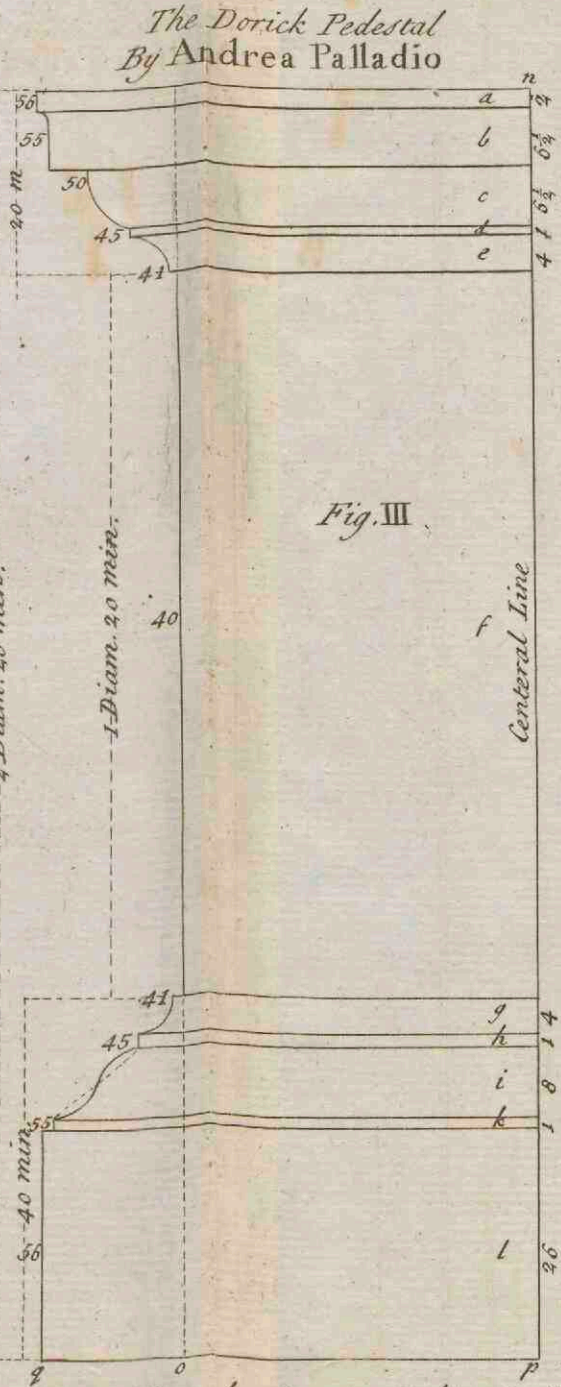 The Dorick Pedestal
By Andrea Palladio
n
56 a 2
55 b 6½
20 m
50 c 6½
45 d 1
41 e 4
Fig. III
1 Diam. 20 min.
40 f
Centeral Line
41 g 4
45 h 1
i 8
55 k 1
40 min
56 l 26
q o p